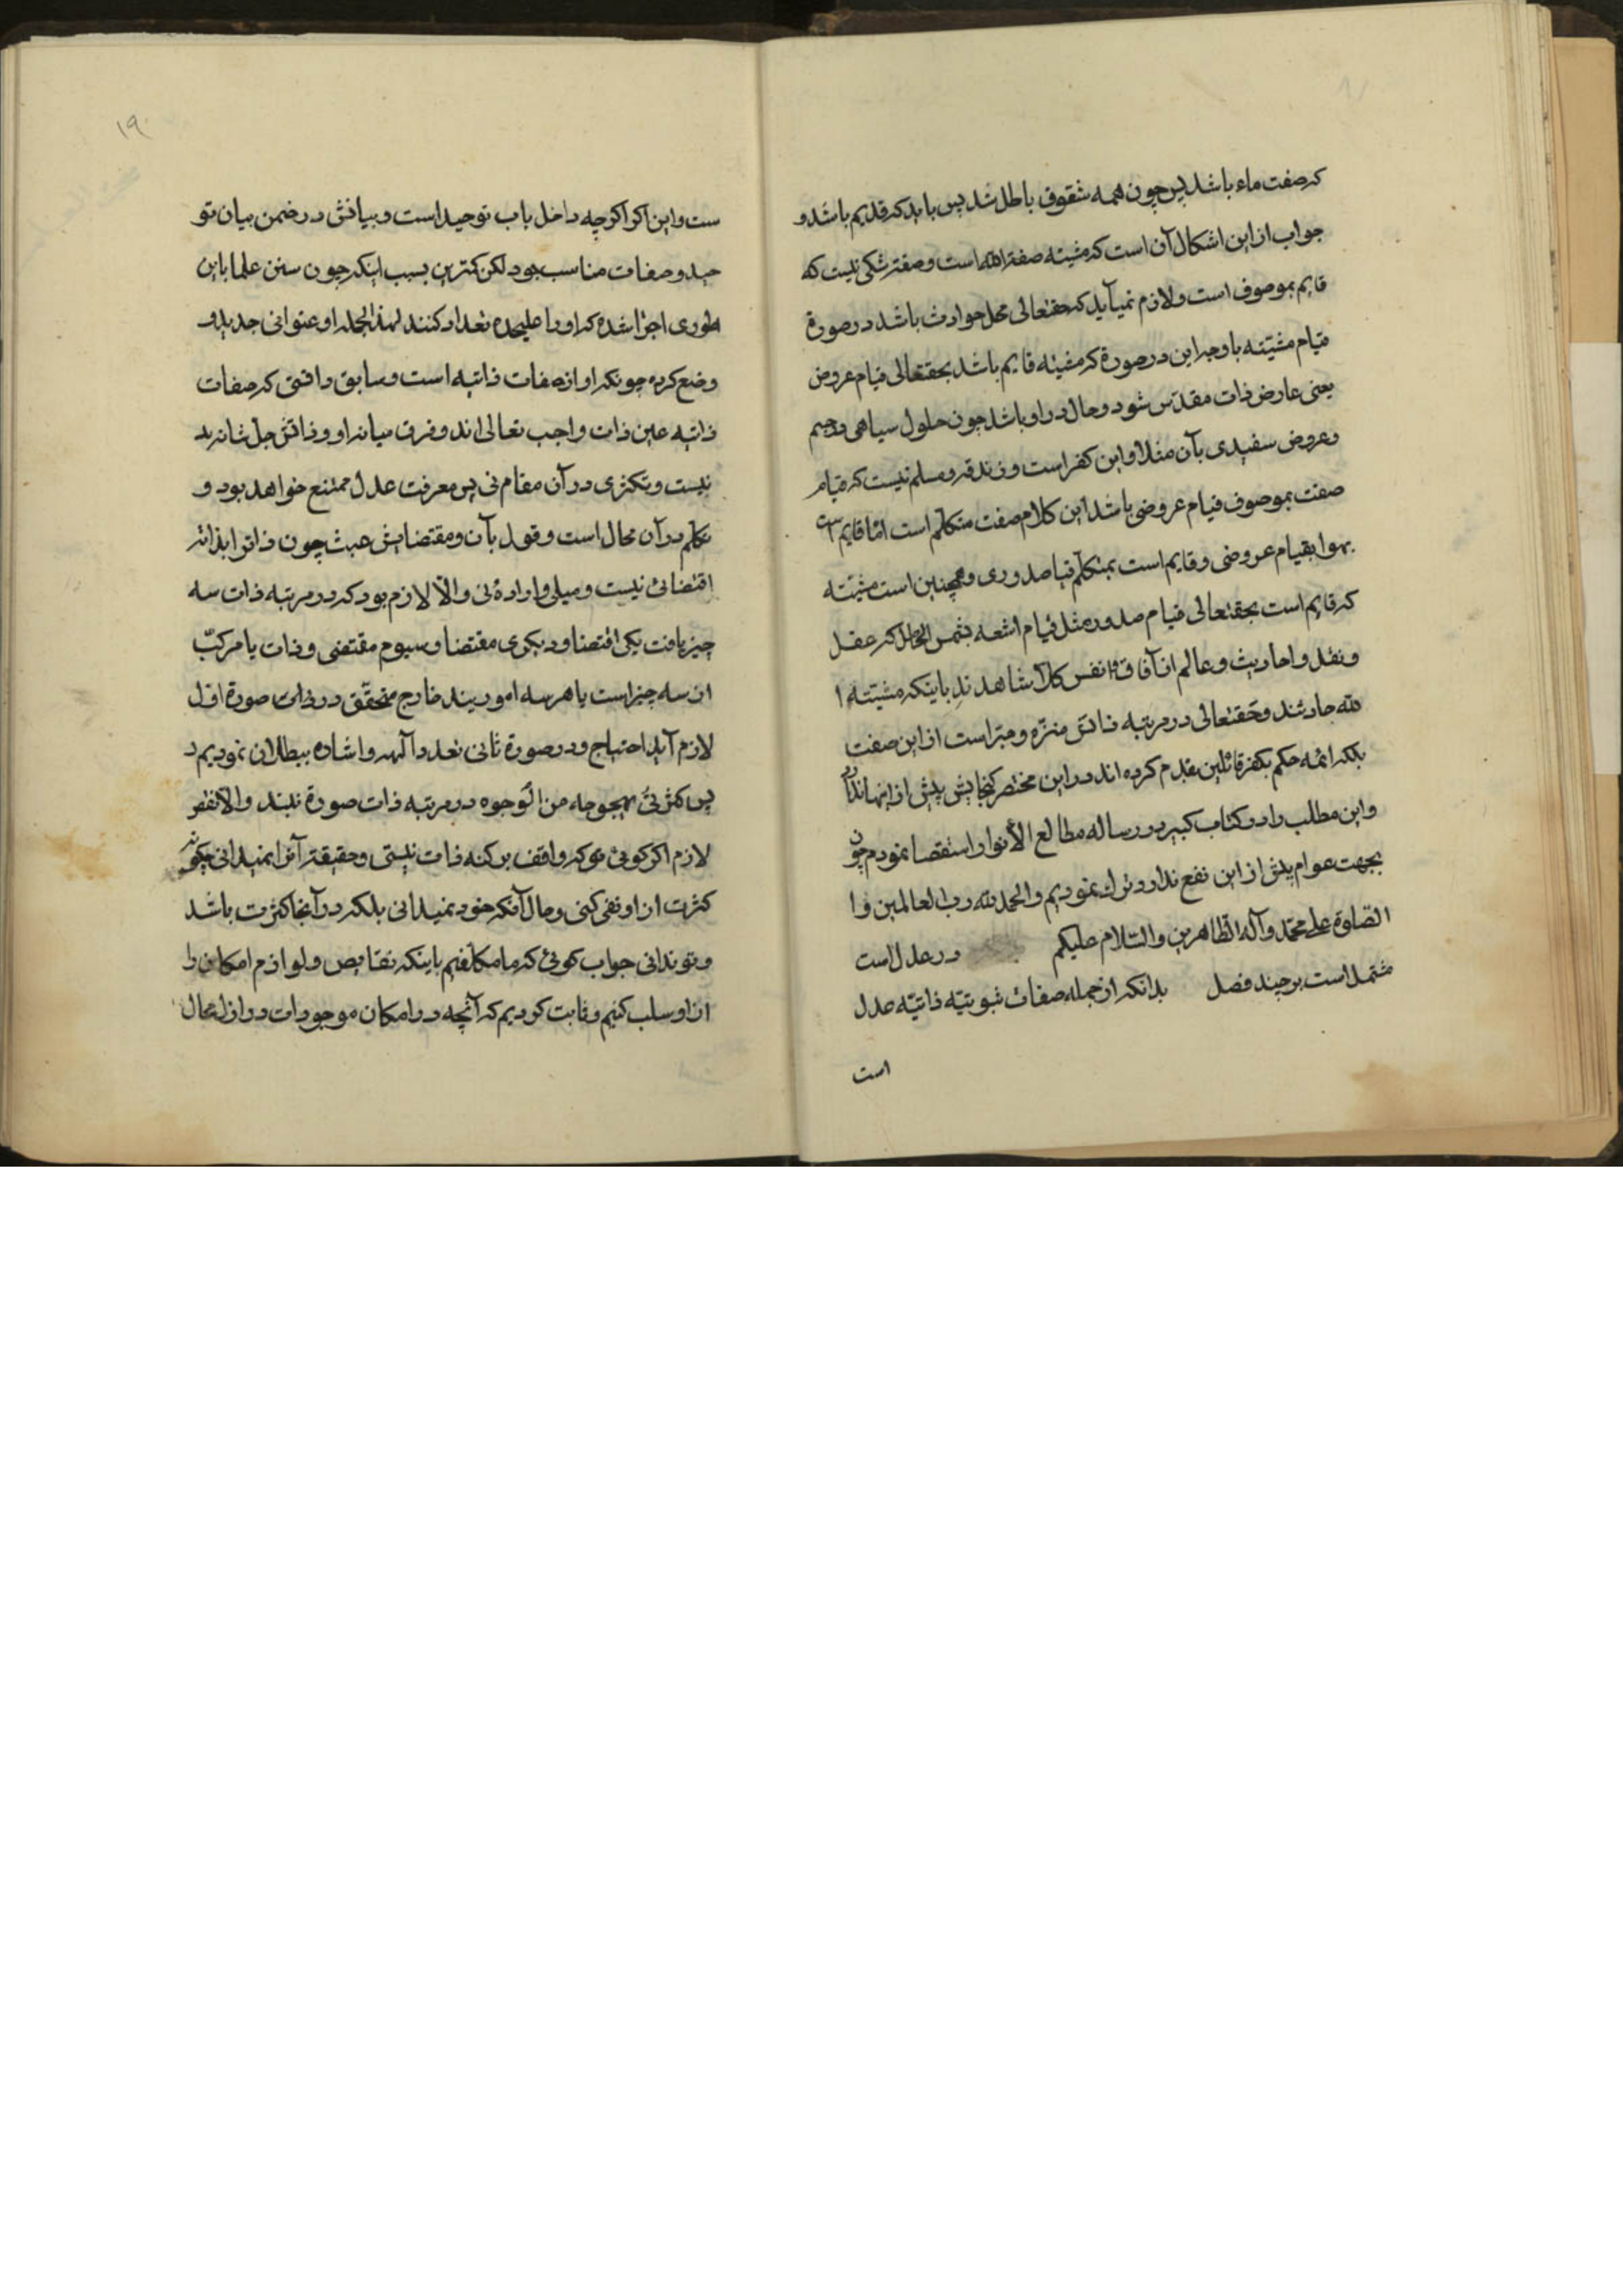 که صفت ماء باشد پس چون همه شقوق باطل شد پس باید که قدیم باشد و
جواب از این اشکال آن است که مشیته صفة الله است و صفتر شکی نیست که
قایم بموصوف است و لازم نمیآید که حقتعالی محل حوادث باشد در صورة
قیام مشیته باو چرا این در صورة که مشیته قایم باشد بحقتعالی قیام عروض
یعنی عارض ذات مقدّس شود و حال در او باشد چون حلول سیاهی در جسم
و عروض سفیدی بآن مثلا و این کفر است و زندقه و مسلم نیست که قیام
صفت بموصوف قیام عروضی باشد این کلام صفت متکلّم است امّا قایم است
بهوا بقیام عروضی و قایم است بمتکلّم قیا صدوری و همچنین است مشیّته
که قایم است بحقتعالی قیام صدور مثل قیام اشعه بشمس که عقل
و نقل و احادیث و عالم از آفاق و انفس کلاّ شاهدند باینکه مشیّته ا
لله حادثند و حقتعالی در مرتبه ذاتش منزّه و مبرّاست از این صفت
بلکه ائمّه حکم بکفر قائلین بقدم کرده اند و در این مختصر گنجایش بیش از اینها ندارد
و این مطلب را در کتاب کبیر و در رساله مطالع الأنوار استقصا نمودم چون
بجهت عوام بیش از این نفع ندارد ترک نمودیم و الحمد لله رب العالمین و ا
الصّلوة علی محمّد و آله الطّاهرین و السّلام علیکم در عدل است
مشتمل است بر چند فصل بدانکه از جمله صفات ثبوتیّه ذاتیّه عدل
است
۱۹
ست و این اگر اگرچه داخل باب توحید است و بیانش در ضمن بیان تو
حید و صفات مناسب بود لکن کترین بسبب اینکه چون سنن علما باین
طوری اجرا شده که او را علیحده تعداد کنند لهذا او عنوانی جدید و
وضع کرده چونکه او از صفات ذاتیه است و سابق دانستی که صفات
ذاتیه عین ذات واجب تعالی اند و فرق میانه او و ذاتش جل شانه
نیست و تکثری در آن مقام نی پس معرفت عدل ممتنع خواهد بود و
تکلم در آن محال است و قول بآن و مقتضایش عبث چون ذاترا بذاته
اقتضائی نیست و میلی و ارادهٔ نی و الّا لازم بود که در مرتبه ذات سه
چیز یافت یکی اقتضا و دیگری مقتضا و سیوم مقتضی و ذات یا مرکبّ
از سه چیز است یا هر سه امورند خارج متحقّق در ذات صورة اول
لازم آید احتیاج و در صورة ثانی تعدد آلهه و اشاره ببطلان نمودیم د
پس کثرتی بهیچ وجه من الوجوه در مرتبه ذات صورة نبند و الا نقص
لازم اگر گوئی تو که واقف بر کنه ذات نیستی و حقیقتر آنرا نمیدانی چگونه
کثرت از او نفی کنی و حال آنکه خود نمیدانی بلکه در آنجا کثرت باشد
و تو ندانی جواب گوئی که ما مکلّفیم باینکه نقایص و لوازم امکان را
از او سلب کنیم و ثابت کردیم که آنچه در امکان موجودات در ازل محال